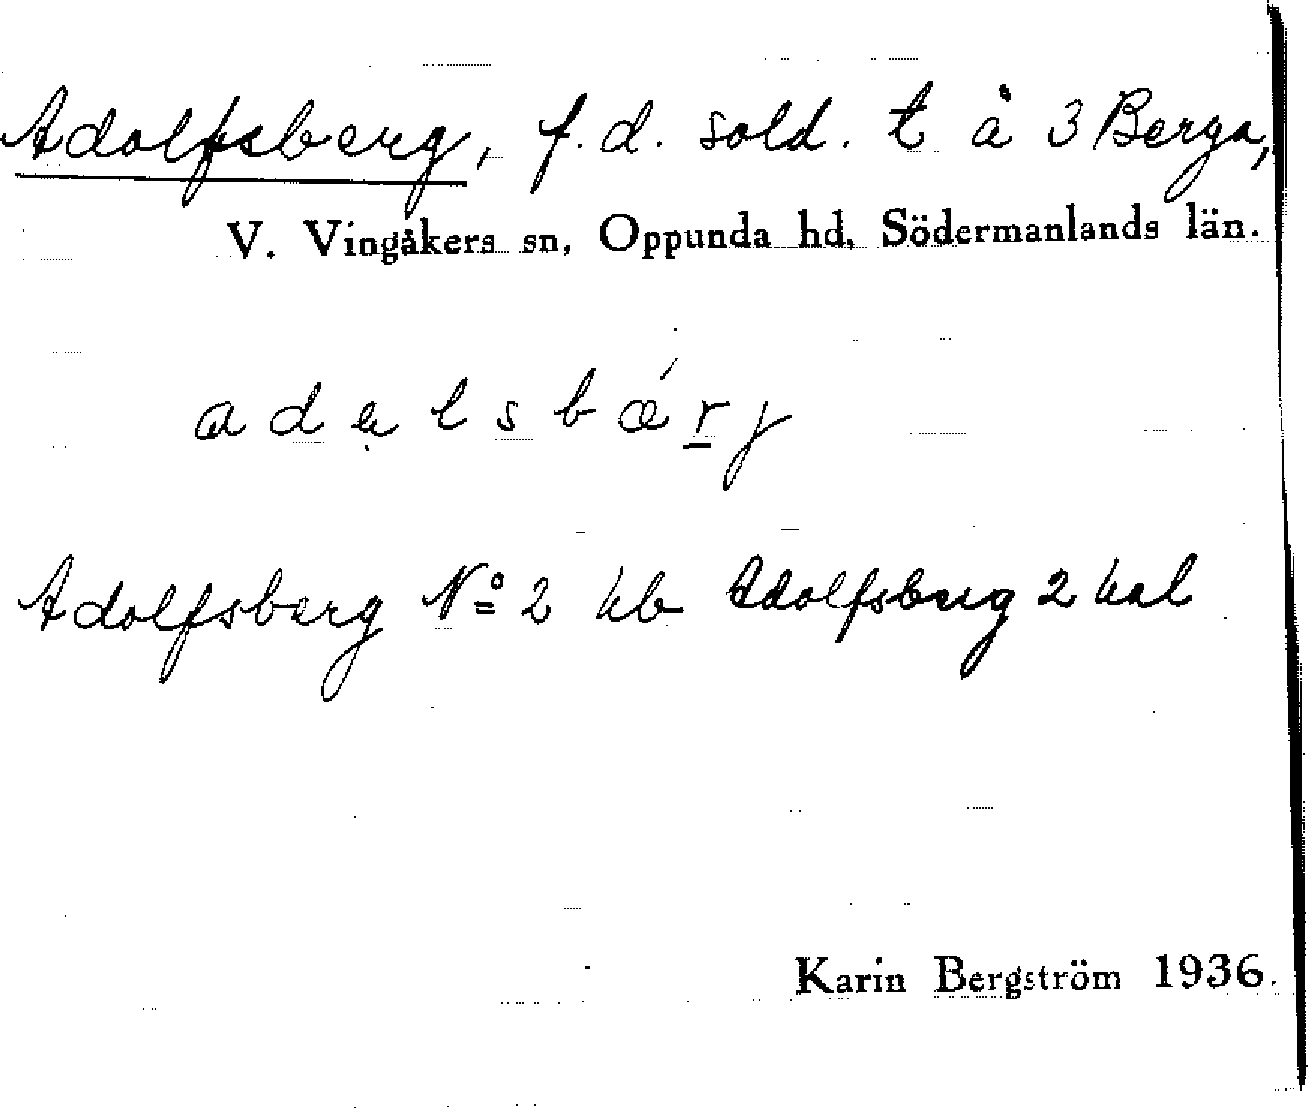 Adolfsberg, f. d. sold. t å 3 Berga,
V. Vingåkers sn, Oppunda hd, Södermanlands län.
adalsbærj
Adolfsberg No 2 hb Adolfsberg 2 hal
Karin Bergström 1936.